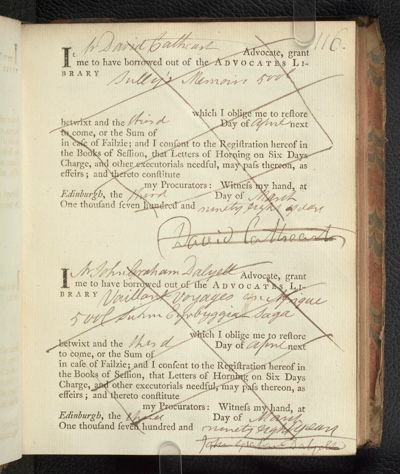 116.
I Mr David Cathcart Advocate, grant
me to have borrowed out of the ADVOCATES LI-
BRARY Sully's Memoirs 5 vols
which I oblige me to reſtore
betwixt and the third Day of April next
to come, or the Sum of
in caſe of Failzie; and I conſent to the Regiſtration hereof in
the Books of Seſſion, that Letters of Horning on Six Days
Charge, and other executorials needful, may paſs thereon, as
effeirs; and thereto conſtitute
my Procurators: Witneſs my hand, at
Edinburgh, the third Day of March
One thouſand ſeven hundred and ninety eight years
David Cathcart
I Mr John Graham Dalyell Advocate, grant
me to have borrowed out of the ADVOCATES LI-
BRARY Vaillant Voyages en Afrique
5 vols Suhm Eyrbyggia Saga
which I oblige me to reſtore
betwixt and the third Day of April next
to come, or the Sum of
in caſe of Failzie; and I conſent to the Regiſtration hereof in
the Books of Seſſion, that Letters of Horning on Six Days
Charge, and other executorials needful, may paſs thereon, as
effeirs; and thereto conſtitute
my Procurators: Witneſs my hand, at
Edinburgh, the third Day of March
One thouſand ſeven hundred and ninety eight years
John Graham Dalyell